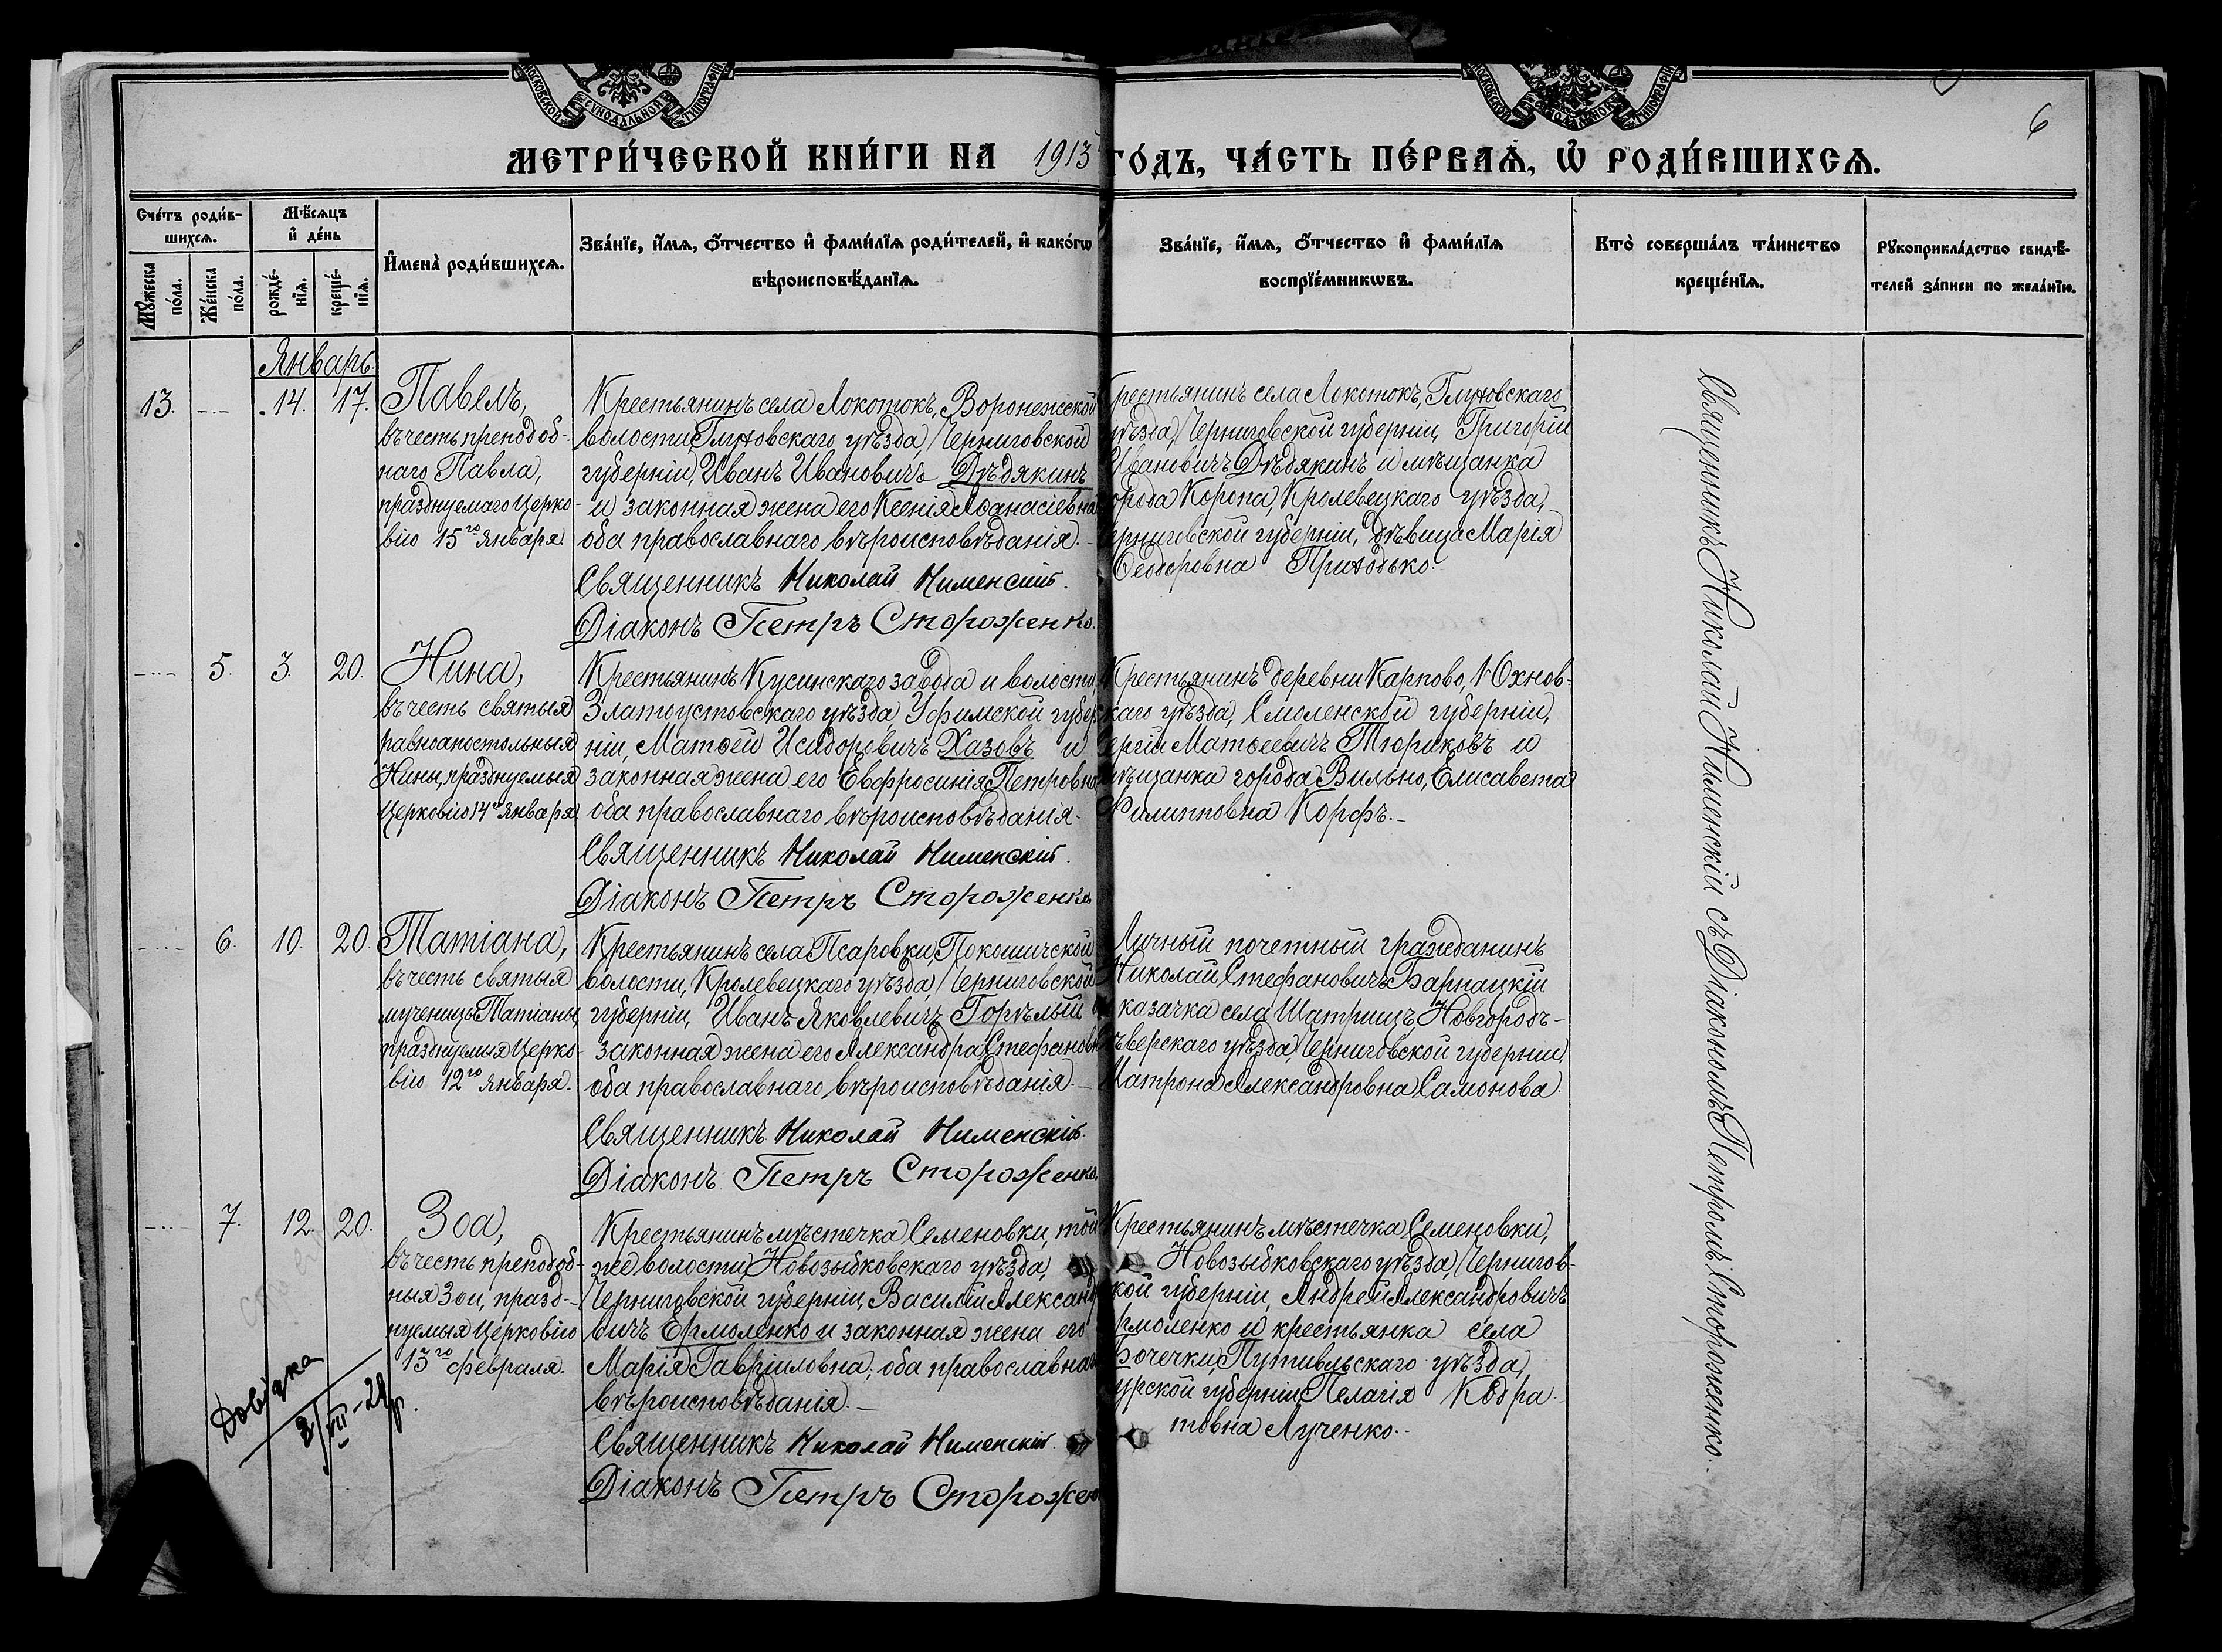 МОСКОВСКОЙ СѴНОДАЛЬНОЙ ТИПОГРАФІИ
МОСКОВСКОЙ СѴНОДАЛЬНОЙ ТИПОГРАФІИ
6
МЕТРИ́ЧЕСКОЙ КНИ́ГИ НА 1913 ГО́ДЪ, ЧА́СТЬ ПЕ́РВАѦ, Ѿ РОДИ́ВШИХСѦ.
Сче́тъ роди́в-
шихсѧ.
Мꙋ́жеска по́ла.
Же́нска по́ла.
Мѣ́сѧцъ
и҆ де́нь
рожде́-
нїѧ.
креще́-
нїѧ.
И҆мена̀ роди́вшихсѧ.
Зва́нїе, и҆́мѧ, ѻ҆́тчество и҆ фами́лїѧ роди́телей, и҆ како́гѡ
вѣроисповѣ́данїѧ.
Зва́нїе, и҆́мѧ, ѻ҆́тчество и҆ фами́лїѧ
воспрїе́мникѡвъ.
Кто̀ соверша́лъ та́инство
креще́нїѧ.
Рꙋкоприкла́дство свидѣ́-
телей за́писи по жела́нїю.
Январь.
13. 14. 17.
Павелъ,
въ честь преподоб-
наго Павла,
празднуемаго Церко-
вію 15го января
Крестьянинъ села Локотокъ, Воронежской
волости, Глуховскаго уѣзда, Черниговской
губерніи, Иванъ Ивановичъ Дѣдякинъ
и законная жена его Ксенія Аѳанасіевна
оба православнаго вѣроисповѣданія.
Священникъ Николай Нименскій.
Діаконъ Петръ Стороженко.
Крестьянинъ села Локотокъ, Глуховскаго
уѣзда, Черниговской губерніи, Григорій
Ивановичъ Дѣдякинъ и мѣщанка
города Коропа, Кролевецкаго уѣзда,
Черниговской губерніи, дѣвица Марія
Ѳеодоровна Приходько.
5. 3. 20.
Нина,
въ честь святыя
равноапостольныя
Нины, празднуемыя
Церковію 14го января
Крестьянинъ Кусинскаго завода и волости,
Златоустовскаго уѣзда, Уфимской губер
ніи, Матѳей Исидоровичъ Хазовъ и
законная жена его Евфросинія Петровна
оба православнаго вѣроисповѣданія.
Священникъ Николай Нименскій.
Діаконъ Петръ Стороженко
Крестьянинъ деревни Карпово, Юхнов-
скаго уѣзда, Смоленской губерніи,
Сергій Матѳеевичъ Тюриковъ и
мѣщанка города Вильно, Елисавета
Филипповна Корфъ.
6. 10. 20.
Татіана,
въ честь святыя
мученицы Татіаны,
празднуемыя Церко-
вію 12го января.
Крестьянинъ села Псаровки, Покошичской
волости, Кролевецкаго уѣзда, Черниговской
губерніи, Иванъ Яковлевичъ Горѣлый и
законная жена его Александра Стефановна
оба православнаго вѣроисповѣданія.
Священникъ Николай Нименскій.
Діаконъ Петръ Стороженко.
Личный почетный гражданинъ
Николай Стефановичъ Барпацкій
казачка села Шатрищъ, Новгородъ-
Сѣверскаго уѣзда, Черниговской губерніи,
Матрона Александровна Самонова.
7. 12. 20.
Зоа,
въ честь преподоб-
ныя Зои, празд-
нуемыя Церковію
13го февраля.
Крестьянинъ мѣстечка Семеновки, той
же волости, Новозыбковскаго уѣзда,
Черниговской губерніи, Василій Александ
вичъ Ермоленко и законная жена его
Марія Гавріиловна, оба православнаго
вѣроисповѣданія.
Священникъ Николай Нименскій.
Діаконъ Петръ Стороженко
Крестьянинъ мѣстечка Семеновки,
Новозыбковскаго уѣзда, Чернигов-
ской губерніи, Андрей Александровичъ
Ермоленко и крестьянка села
Бочечки, Путивльскаго уѣзда,
Курской губерніи, Пелагія Кодра-
товна Лученко.
Священникъ Николай Нименскій съ Діакономъ Петромъ Стороженко.
Довідка
2/VII-29 р.